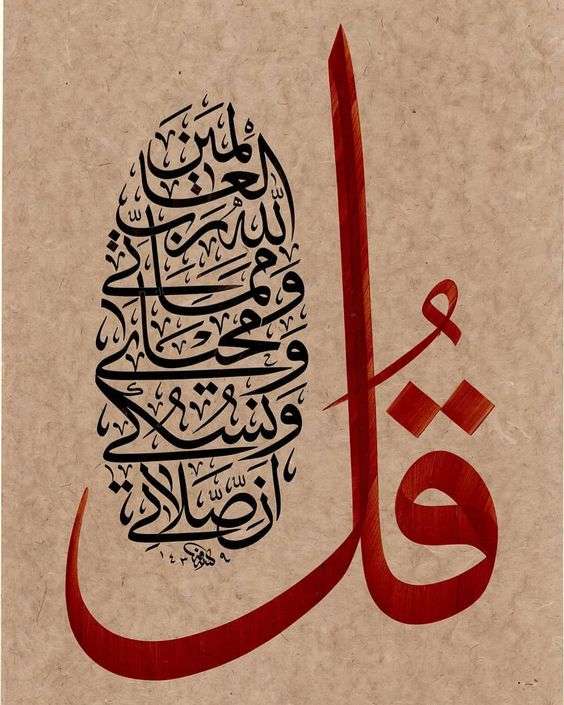 قُل
ان صلاتي
ونسكي
ومحياي
ومماتي
لله رب
العالمين
١٤٣٩